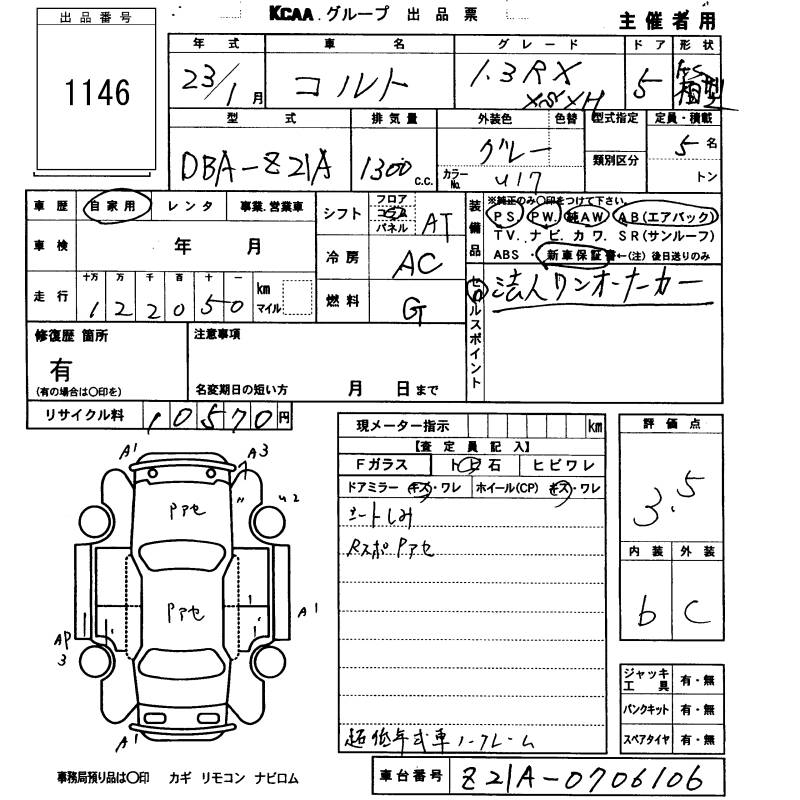 KCAA グループ 出品票
主催者用
出品番号
1146
年式 車名 グレード ドア 形状
23/1月 コルト 1.3RX 5 箱型
型式 排気量 外装色 色替 型式指定 定員・積載
DBA-Z21A 1300 c.c. グレー 5名
カラーNo. U17 類別区分 トン
車歴 自家用 レンタ 事業.営業車
シフト フロア コラム パネル AT
装備品 ※純正のみ○印をつけて下さい。
PS PW. 純AW AB(エアバック)
TV. ナビ. カワ. SR(サンルーフ)
ABS ・ 新車保証書←(注)後日送りのみ
車検 年 月
冷房 AC
走行 十万 万 千 百 十 一 km マイル
122050
燃料 G
セールスポイント 法人ワンオーナーカー
修復歴 箇所
有
(有の場合は○印を)
注意事項
名変期日の短い方 月 日まで
リサイクル料 10570円
現メーター指示 km
【査定員記入】
Fガラス トビ石 ヒビワレ
ドアミラー キズ・ワレ ホイール(CP) キズ・ワレ
シートしみ
Rスポ Pアセ
超低年式車 ノークレーム
評価点
3.5
内装 外装
b C
ジャッキ工具 有・無
パンクキット 有・無
スペアタイヤ 有・無
A1 A3
Pアセ
U2
Pアセ
A1
AP
3
A1
事務局預り品は○印 カギ リモコン ナビロム
車台番号 Z21A-0706106